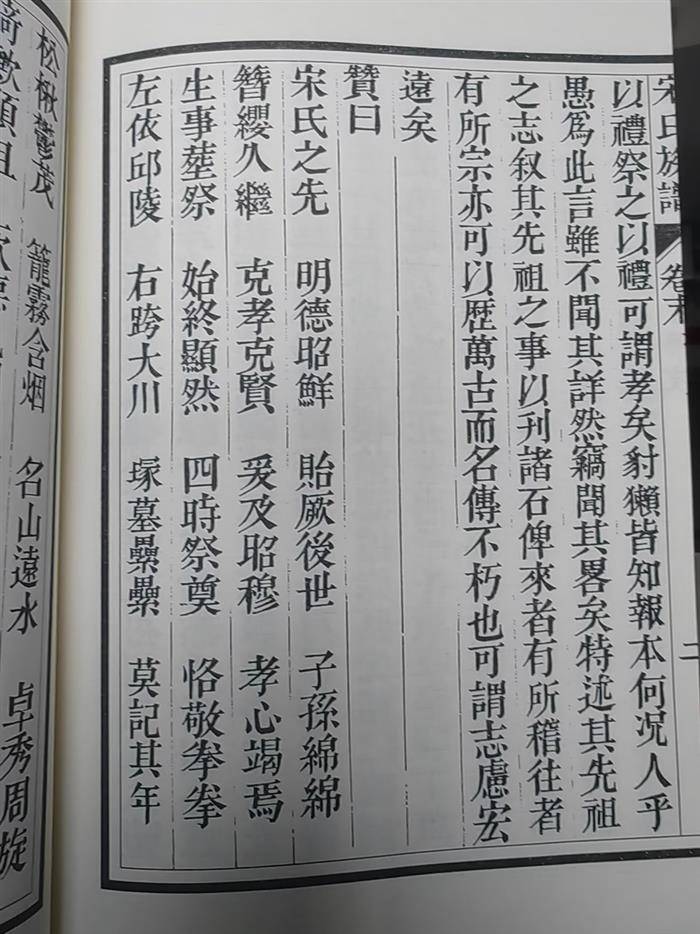 宋氏族譜 卷末 二
以禮祭之以禮可謂孝矣豺獺皆知報本何况人乎
愚爲此言雖不聞其詳然竊聞其畧矣特述其先祖
之志叙其先祖之事以刋諸石俾來者有所稽往者
有所宗亦可以歴萬古而名傳不朽也可謂志慮宏
遠矣
贊曰
宋氏之先 明德昭鮮 貽厥後世 子孫綿綿
簪纓久繼 克孝克賢 爰及昭穆 孝心竭焉
生事塟祭 始終顯然 四時祭奠 恪敬拳拳
左依邱陵 右跨大川 塚墓纍纍 莫記其年
松楸鬱茂 籠霧含烟 名山遠水 卓秀周旋